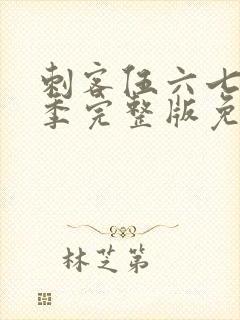 刺客伍六七
季完整版免
林芝第